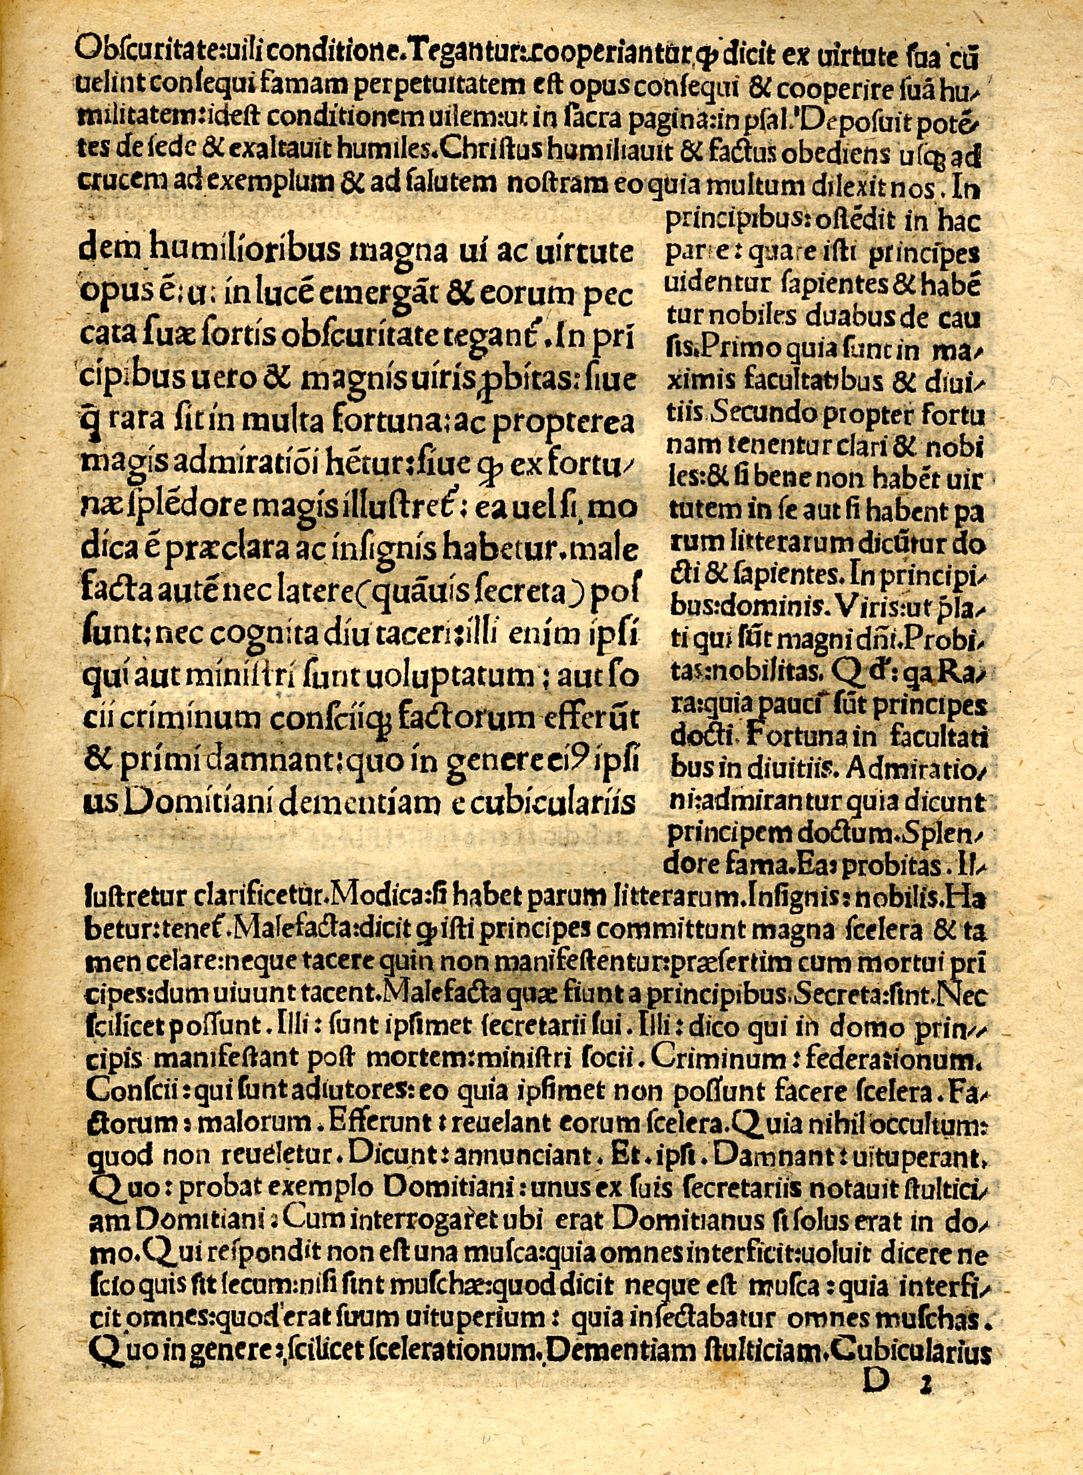 Obscuritate:uili conditione.Tegantur:cooperiantur,ꝙ dicit ex uirtute sua cū
uelint consequi famam perpetuitatem est opus consequi & cooperire suā hu-
militatem:idest conditionem uilem:ut in sacra pagina:in psal.Deposuit potē-
tes de sede & exaltauit humiles.Christus humiliauit & factus obediens usꝗ ad
crucem ad exemplum & ad salutem nostram eo quia multum dilexit nos. In
dem humilioribus magna ui ac uirtute
opus ē:u: in lucē emergāt & eorum pec
cata suæ sortis obscuritate teganť.In pri
cipibus uero & magnis uiris ꝓbitas:siue
ꝙ̄ rara sit in multa fortuna:ac propterea
magis admiratiōi hētur:siue ꝙ ex fortu-
næ splēdore magis illustreť: ea uel si mo
dica ē præclara ac insignis habetur.male
facta autē nec latere(quāuis secreta)pos
sunt:nec cognita diu taceri:illi enim ipsi
qui aut ministri sunt uoluptatum: aut so
cii criminum consciiꝗ factorum efferūt
& primi damnant:quo in genere eiꝰ ipsi
us Domitiani dementiam e cubiculariis
principibus:ostēdit in hac
parte: quare isti principes
uidentur sapientes & habē
tur nobiles duabus de cau
sis.Primo quia sunt in ma-
ximis facultatibus & diui-
tiis.Secundo propter fortu
nam tenentur clari & nobi
les:& si bene non habēt uir
tutem in se aut si habent pa
rum litterarum dicūtur do
cti & sapientes. In principi-
bus:dominis. Viris:ut p̄la-
ti qui sūt magni dñi.Probi-
tas:nobilitas. Qď: qa Ra-
ra:quia pauci sūt principes
docti. Fortuna in facultati
bus in diuitiis. Admiratio-
ni:admirantur quia dicunt
principem doctum.Splen-
dore fama.Ea:probitas. Il-
lustretur clarificetur.Modica:si habet parum litterarum.Insignis:nobilis.Ha
betur:teneť.Malefacta:dicit ꝙ isti principes committunt magna scelera & ta
men celare:neque tacere quin non manifestentur:præsertim cum mortui pri
cipes:dum uiuunt tacent.Malefacta quæ fiunt a principibus.Secreta:sint.Nec
scilicet possunt. Illi: sunt ipsimet secretarii sui. Illi: dico qui in domo prin-
cipis manifestant post mortem:ministri socii. Criminum: federationum.
Conscii:qui sunt adiutores:eo quia ipsimet non possunt facere scelera. Fa-
ctorum: malorum. Efferunt: reuelant eorum scelera.Quia nihil occultum:
quod non reueletur. Dicunt:annunciant. Et. ipsi. Damnant:uituperant.
Quo: probat exemplo Domitiani:unus ex suis secretariis notauit stultici-
am Domitiani:Cum interrogaret ubi erat Domitianus si solus erat in do-
mo.Qui respondit non est una musca:quia omnes interficit:uoluit dicere ne
scio quis sit secum:nisi sint muschæ:quod dicit neque est musca: quia interfi-
cit omnes:quod erat suum uituperium: quia insectabatur omnes muschas.
Quo in genere:scilicet scelerationum.Dementiam stulticiam.Cubicularius
D 2